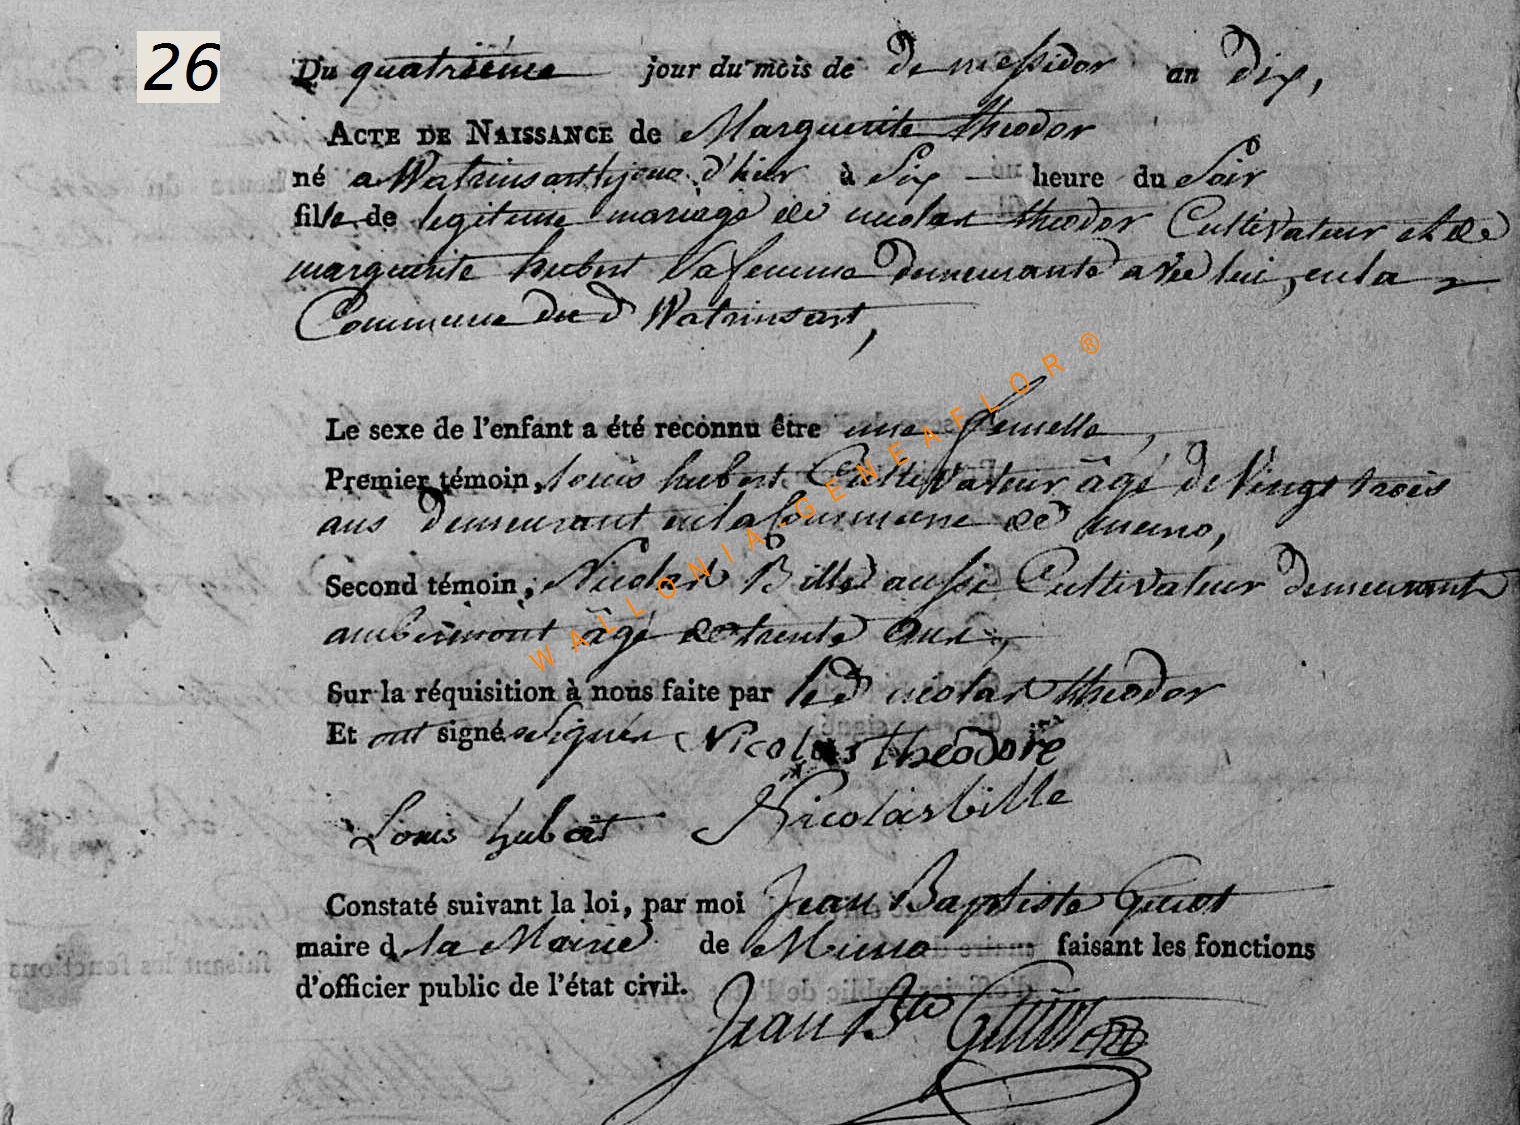 26
Du quatriéme jour du mois de de messidor an dix,
ACTE DE NAISSANCE de Marguerite theodor
né a Watrinsart jour d'hier à Six heure du Soir
fille de legitime mariage de nicolas theodor Cultivateur et de
marguerite hubert Sa femme demeurante avec lui, en la
Commune dud Watrinsart,
Le sexe de l'enfant a été reconnu être une femelle,
Premier témoin, louis hubert Cultivateur âgé de Vingt trois
ans demeurant en la Commune de muno,
Second témoin, Nicolas Bille aussi Cultivateur demeurant
âgé de trente ans,
Sur la réquisition à nous faite par led nicolas theodor
Et ont signé Nicolas theodore
Louis hubert Nicolas bille
Constaté suivant la loi, par moi Jean Baptiste Guiot
maire d la Mairie de Muno faisant les fonctions
d'officier public de l'état civil.
Jean Bte
WALLONIA-GENEAFLOR®